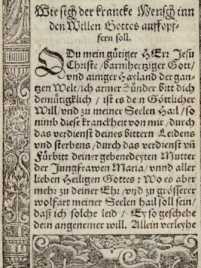 Wie sich der krancke Mensch inn
den Willen Gottes auffopf-
fern soll.
O Du mein gütiger HErr Jesu
Christe / barmhertziger Gott /
vnd ainiger Hailand der gan-
tzen Welt / ich armer Sünder bitt dich
demütigklich / ist es dein Göttlicher
Will / vnd zu meiner Seelen Hail / so
nimb dise kranckheit von mir / durch
das verdienst deines bittern Leidens
vnd sterbens / durch das verdienst vnd
Fürbitt deiner gebenedeyten Mutter
der Jungfrawen Maria / vnnd aller
lieben Heiligen Gottes : Wo es aber
mehr zu deiner Ehr / vnd zu grösserer
wolfart meiner Seelen hail soll sein /
daß ich solche leid / Ey so geschehe
dein angenemer will. Allein verleyhe